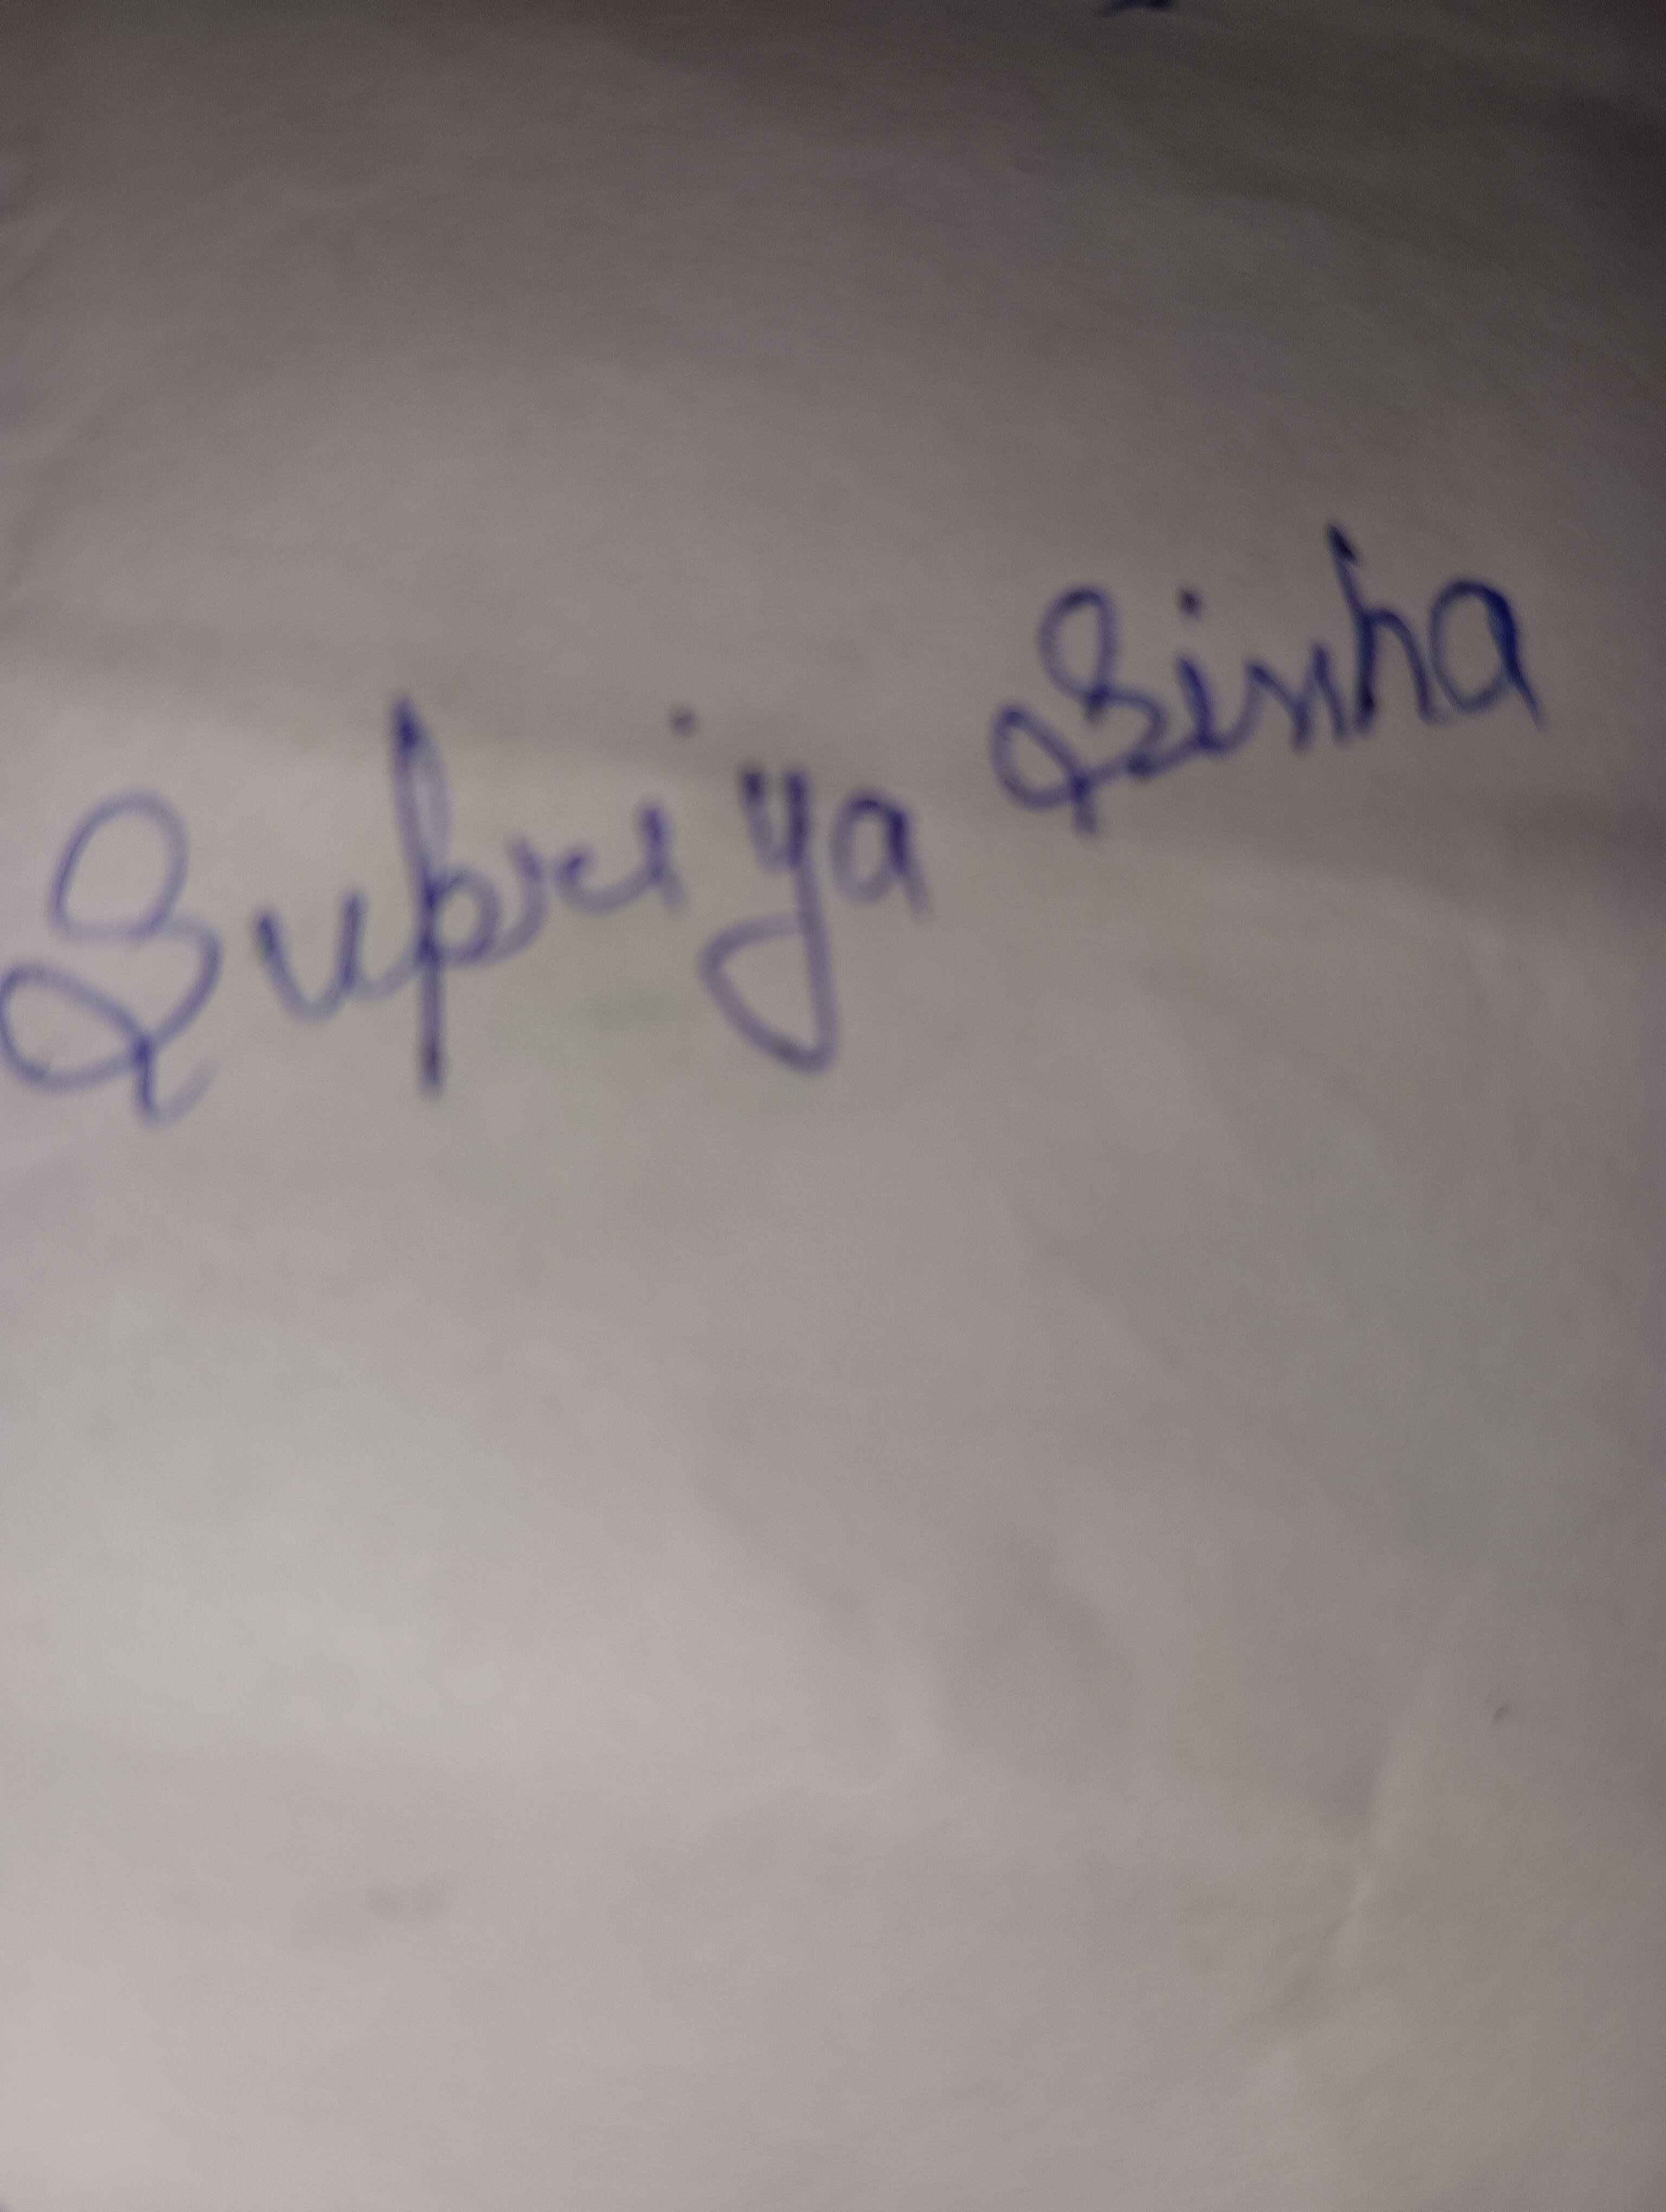 Supriya Sinha